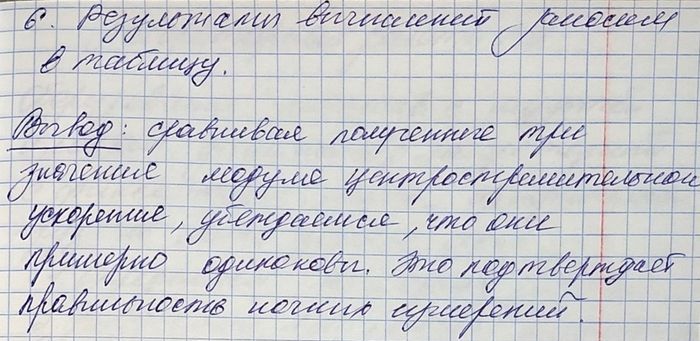 6. Результаты вычислений заносим
в таблицу.
Вывод: сравнивая полученные три
значения модуля центростремительной
ускорения, убеждаемся, что они
примерно одинаковы. Это подтверждает
правильность наших измерений.